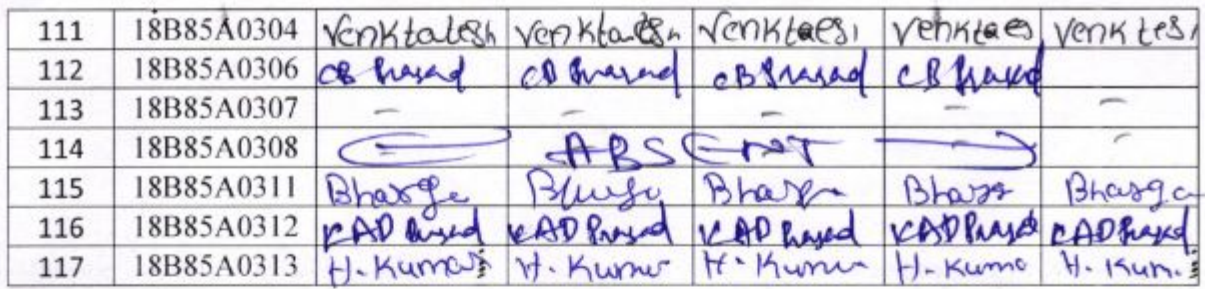 111 18B85A0304 Venktatesh Venktatesh Venktaesi Venktaes Venktesi
112 18B85A0306 CB Prasad CB Prasad CB Prasad CB Prasad
113 18B85A0307 - - - - -
114 18B85A0308 ABSENT -
115 18B85A0311 Bharga Bharga Bharga Bharga
116 18B85A0312 KAD Prasad KAD Prasad KAD Prasad KAD Prasad KAD Prasad
117 18B85A0313 H. Kumar H. Kumar H. Kumar H. Kuma H. Kum.